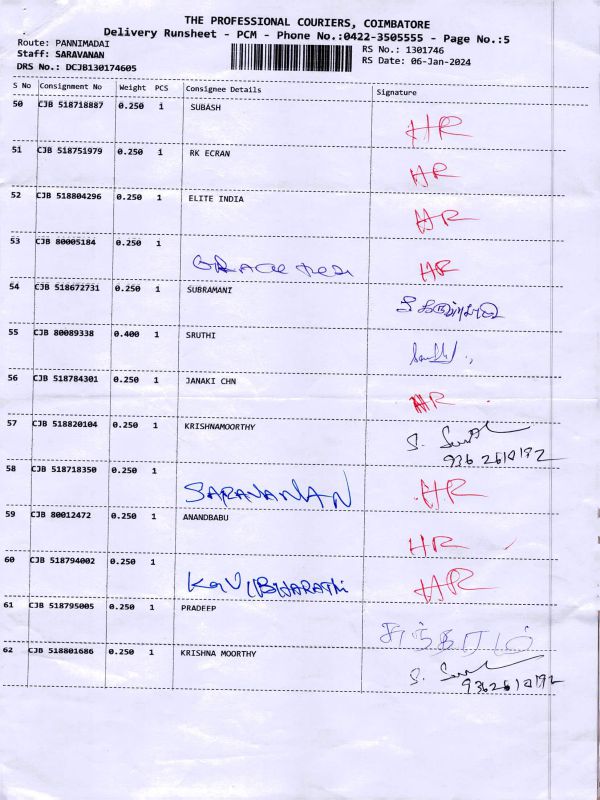 THE PROFESSIONAL COURIERS, COIMBATORE
Delivery Runsheet - PCM - Phone No.:0422-3505555 - Page No.:5
Route: PANNIMADAI
Staff: SARAVANAN
DRS No.: DCJB130174605
RS No.: 1301746
RS Date: 06-Jan-2024
S No Consignment No Weight PCS Consignee Details Signature
50 CJB 518718887 0.250 1 SUBASH HR
51 CJB 518751979 0.250 1 RK ECRAN HR
52 CJB 518804296 0.250 1 ELITE INDIA HR
53 CJB 80005184 0.250 1 HR
54 CJB 518672731 0.250 1 SUBRAMANI
55 CJB 80089338 0.400 1 SRUTHI
56 CJB 518784301 0.250 1 JANAKI CHN HR
57 CJB 518820104 0.250 1 KRISHNAMOORTHY S.
9362610192
58 CJB 518718350 0.250 1 SARAVANAN HR
59 CJB 80012472 0.250 1 ANANDBABU HR
60 CJB 518794002 0.250 1 KAVIBHARATHI HR
61 CJB 518795005 0.250 1 PRADEEP
62 CJB 518801686 0.250 1 KRISHNA MOORTHY S.
9362610192